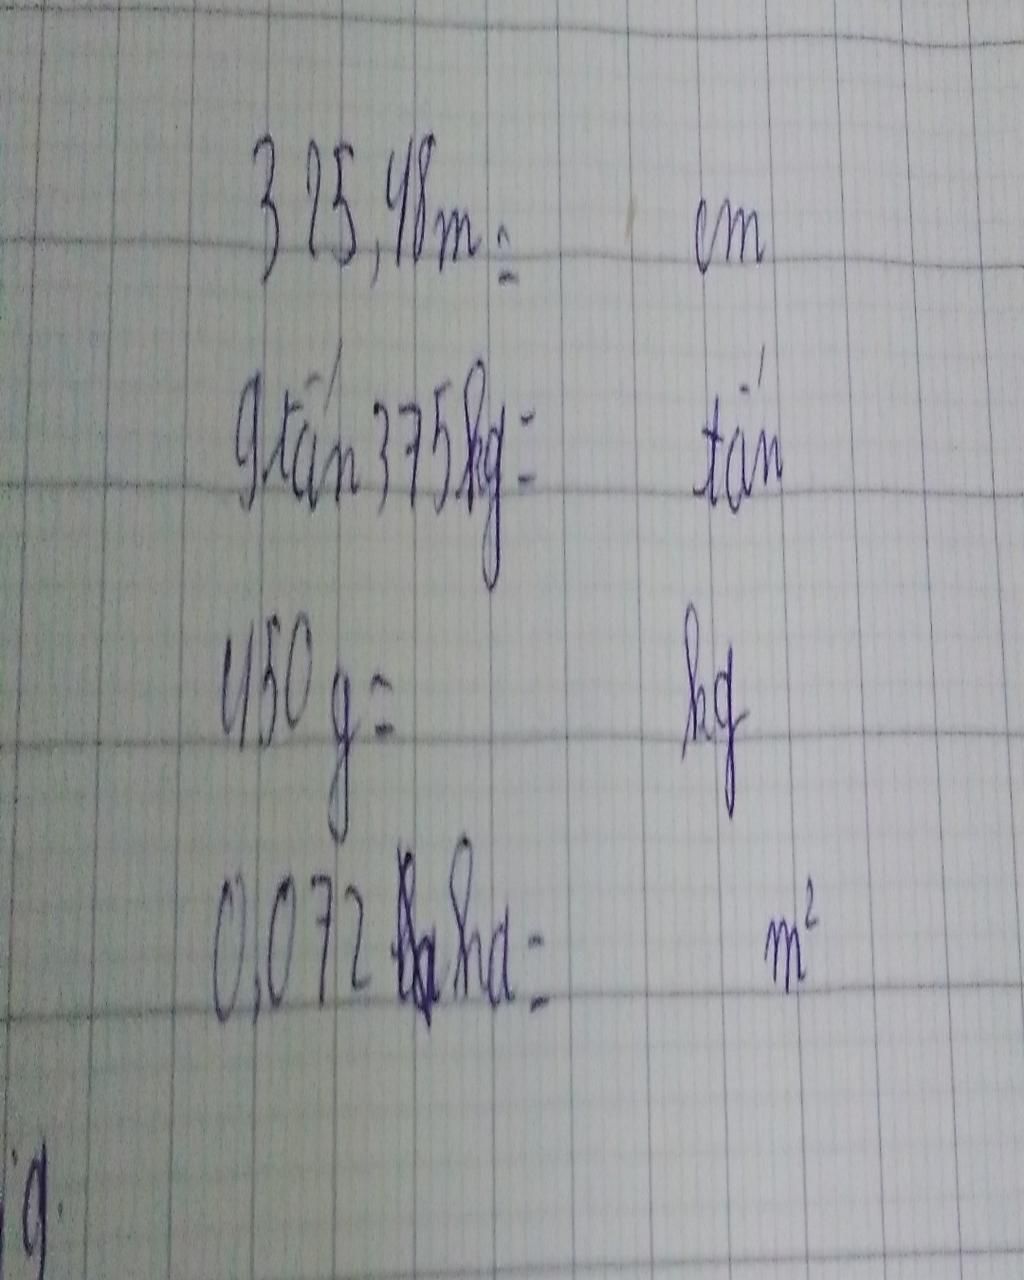 325,48m = cm
9 tấn 375kg = tấn
450 g = kg
0,072 ha = m²
g.